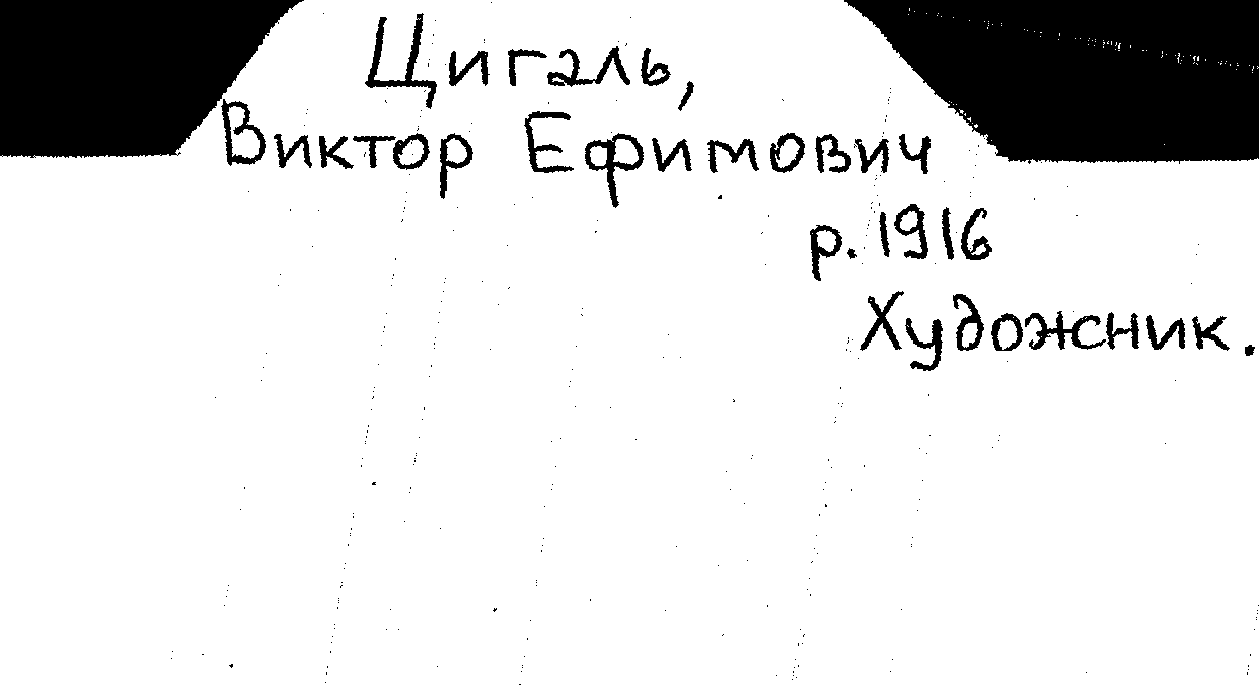 Цигаль,
Виктор Ефимович
р. 1916
Художник.